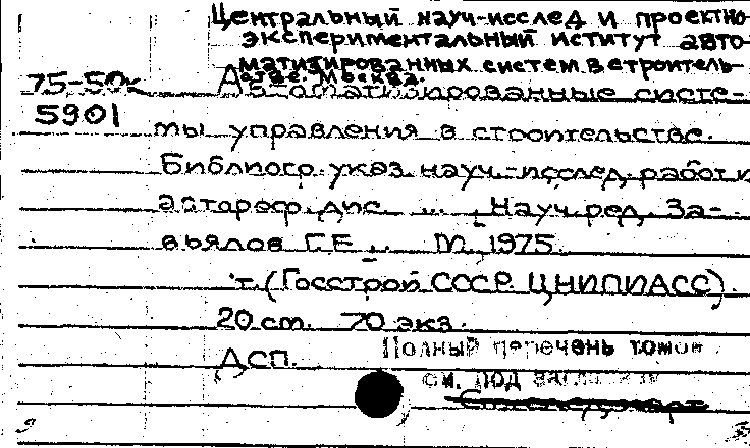 Центральный науч-исслед и проектно-
экспериментальный иститут авто-
матизированных систем в строитель-
стве. Москва.
75-50к
Автоматизированные систе-
5901
мы управления в строительстве.
Библиогр. указ. науч.-исслед. работ и
автореф. дис. ... Науч. ред. За-
вьялов Г.Е. М., 1975.
т. (Госстрой СССР. ЦНИПИАСС).
20 cm. 70 экз.
ДСП.
Полный перечень томов
см. под заглавием